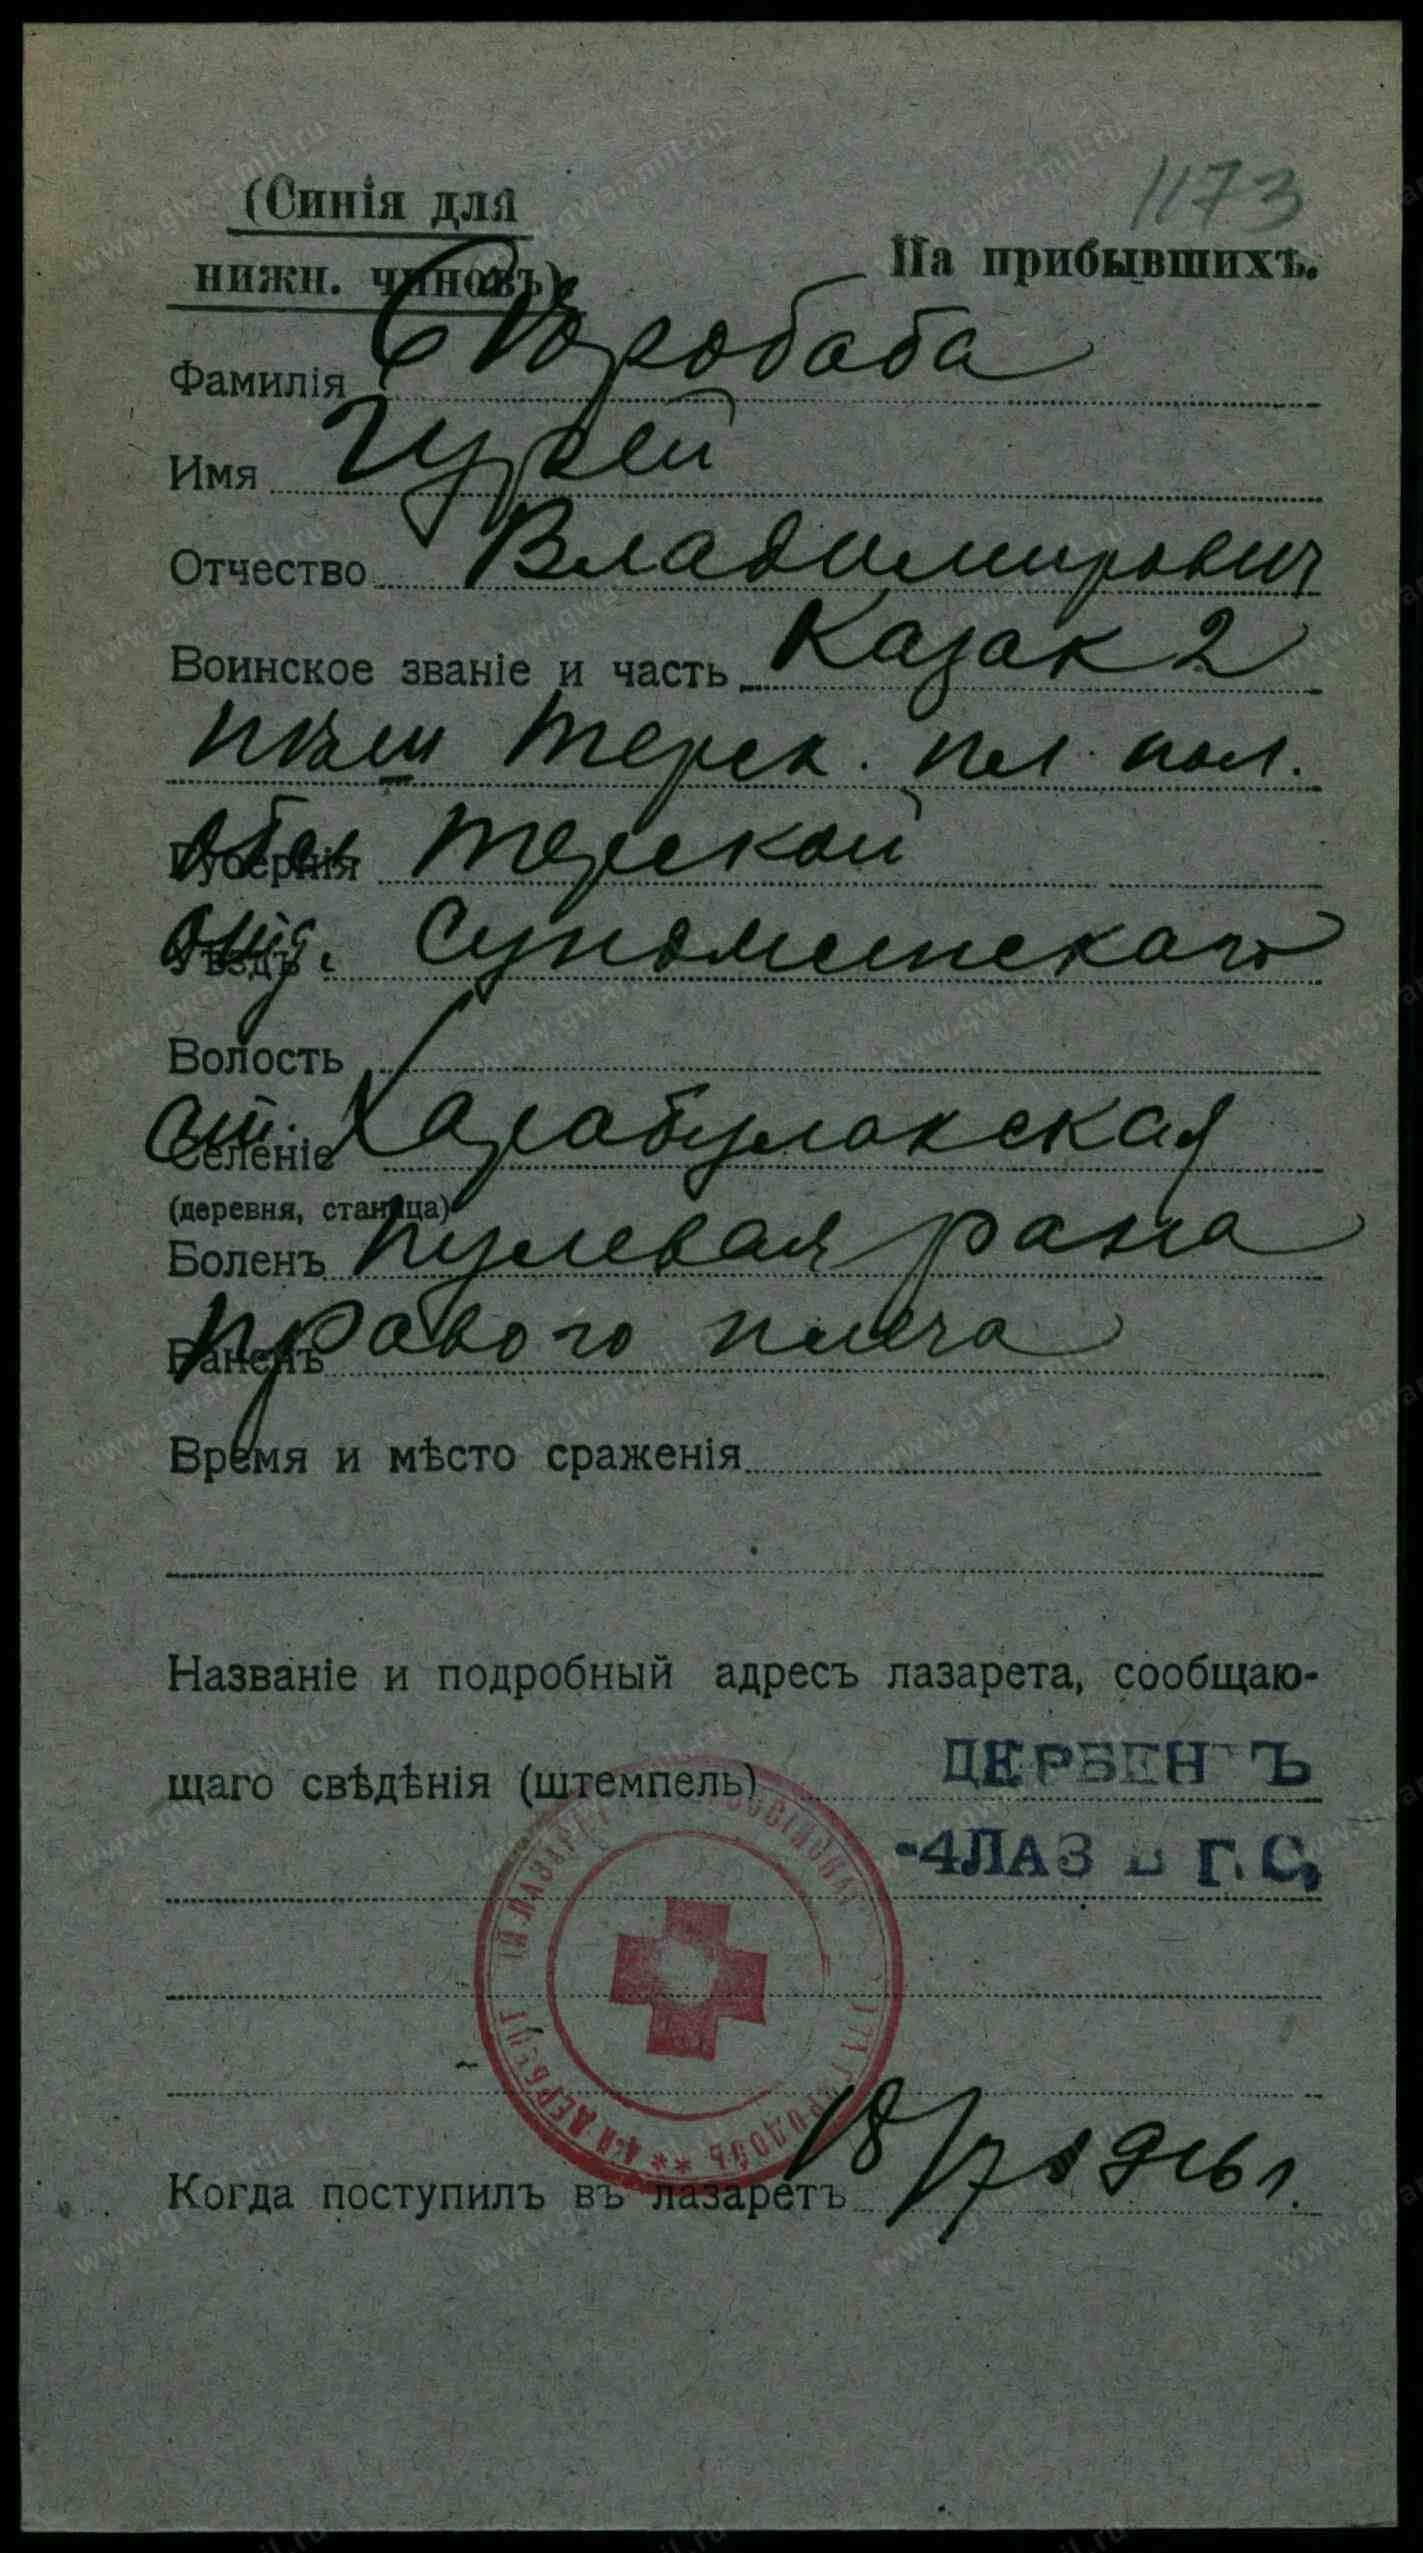 1173
(Синія для
нижн. чиновъ)
На прибывшихъ.
Фамилія Скоробаба
Имя Гурей
Отчество Владимирович
Воинское званіе и часть Казак 2
Терск. пл. пол.
Губернія обл. Терской
Уѣздъ отд. Сунженскаго
Волость
Селеніе ст. Карабулакская
(деревня, станица)
Боленъ пулевая рана
Раненъ правого плеча
Время и мѣсто сраженія
Названіе и подробный адресъ лазарета, сообщаю-
щаго свѣдѣнія (штемпель)
ДЕРБЕНТЪ
-4ЛАЗ В Г. С,
ЛАЗАРЕТ ГОРОДОВЪ ** 4-й ДЕРБЕНТ
Когда поступилъ въ лазаретъ 18/7 1916 г.